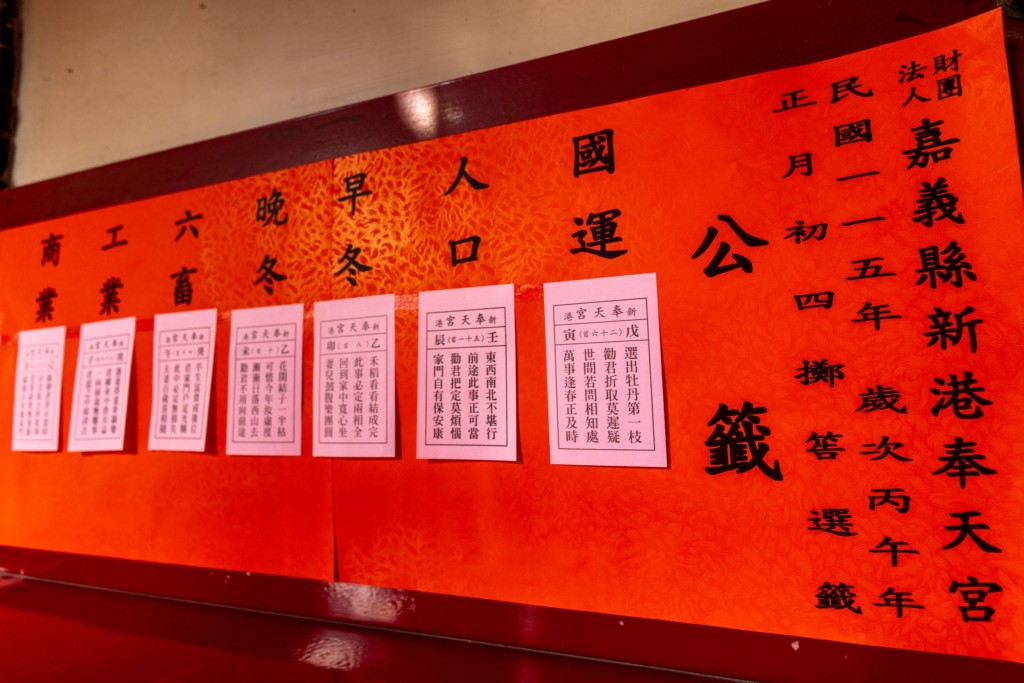 財團
法人
嘉義縣新港奉天宮
民國一一五年 歲次丙午年
正月初四擲筶選籤
公籤
國運
新港奉天宮
戊(二十六首)寅
選出牡丹第一枝
勸君折取莫遲疑
世間若問相知處
萬事逢春正及時
人口
新港奉天宮
壬(五十一首)辰
東西南北不堪行
前途此事正可當
勸君把定莫煩惱
家門自有保安康
早冬
新港奉天宮
乙(八首)卯
禾稻看看結成完
此事必定兩相全
回到家中寬心坐
妻兒鼓腹樂團圓
晚冬
新港奉天宮
乙(十首)未
花開結子一半枯
可惜今年汝虛度
漸漸日落西山去
勸君不用向前途
六畜
新港奉天宮
庚(四十首)午
平生富貴成祿位
君家門戶定光輝
此中必定無損失
夫妻百歲喜相隨
工業
新港奉天宮
商業